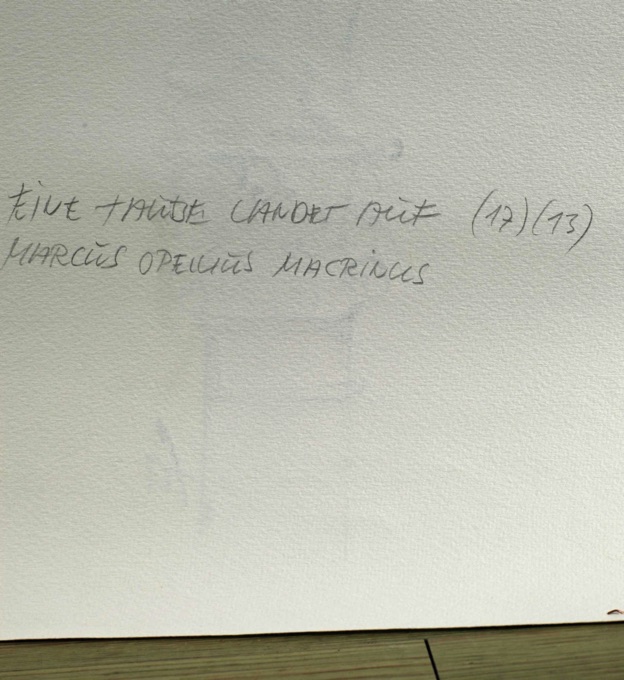 EINE TAUBE LANDET AUF (17)(13)
MARCUS OPELLIUS MACRINUS